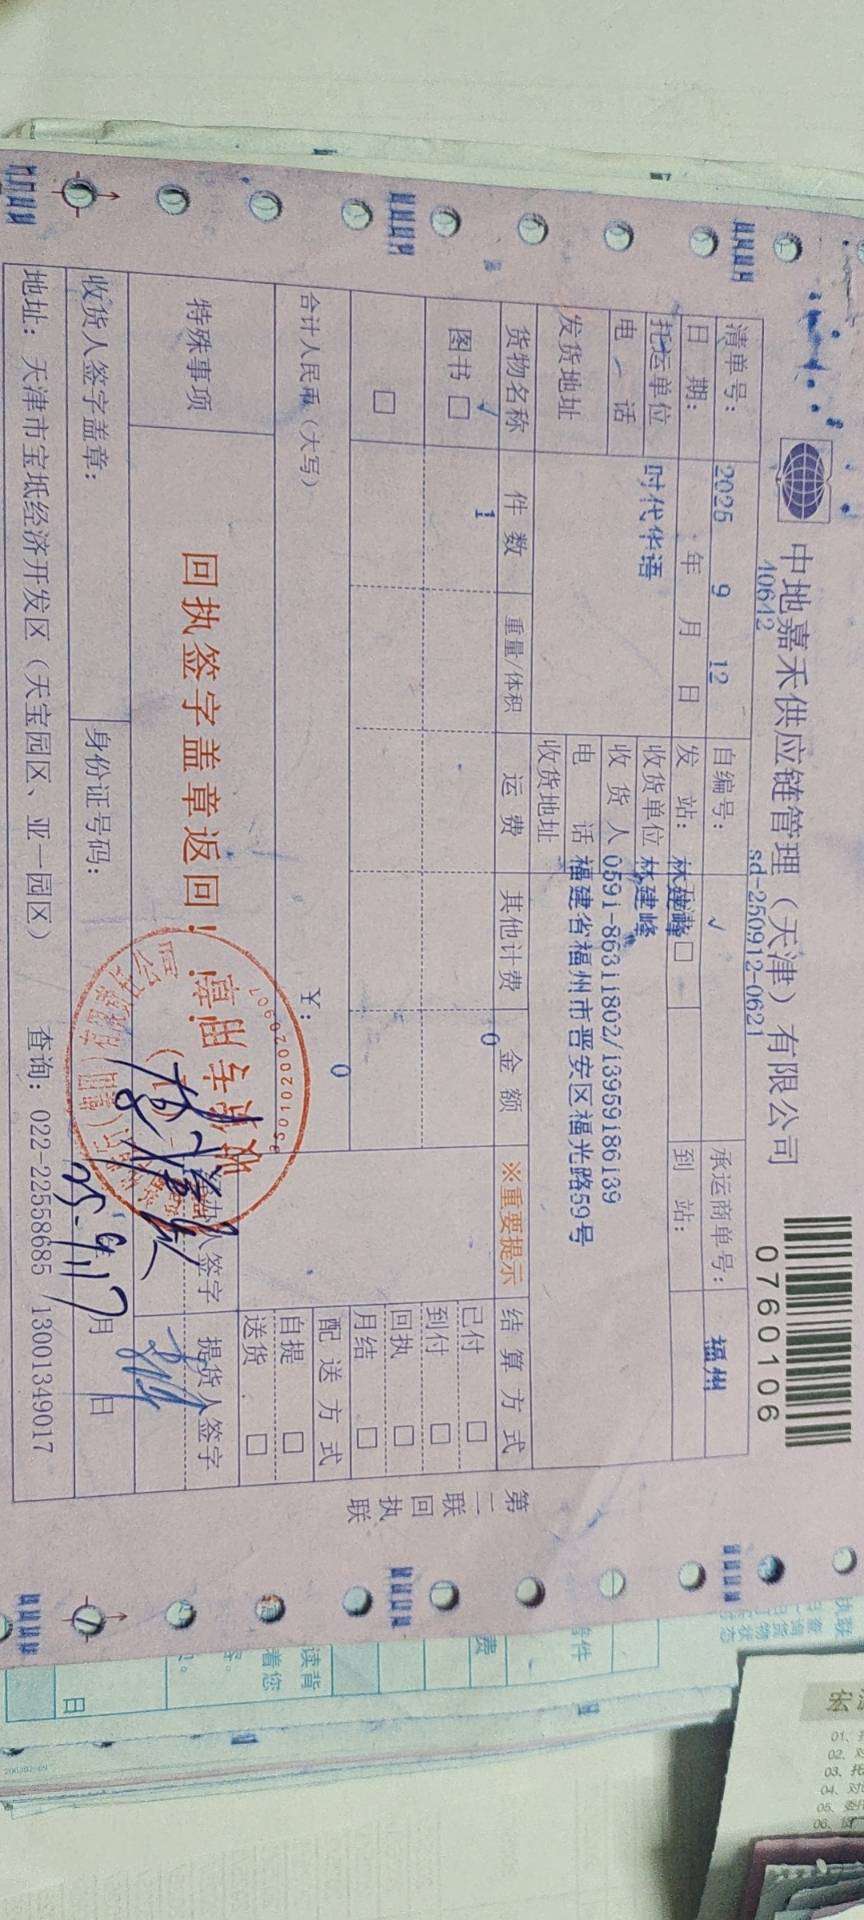 中地嘉禾供应链管理（天津）有限公司
0760106
清单号：
40642
自编号：
sd-250912-0621
承运商单号：
日 期：
2025 年 9 月 12 日
发 站：
√
到 站：
福州
托运单位
时代华语
收货单位
林建峰
电 话
收 货 人
0591-86311802/13959186139
发货地址
电 话
福建省福州市晋安区福光路59号
收货地址
货物名称 件 数 重量/体积 运 费 其他计费 金 额 ※重要提示 结 算 方 式
图书 □ √ 1 0
已付 □
到付 □
□
回执 □
月结 □
合计人民币（大写）
￥：
0
配 送 方 式
自提 □
送货 □
特殊事项
回执签字盖章返回！
35010200020901
人签字 提货人签字
收货人签字盖章：
身份证号码：
25.9.17
月 日
地址：天津市宝坻经济开发区（天宝园区、亚一园区）
查询：022-22558685 13001349017
第二联回执联